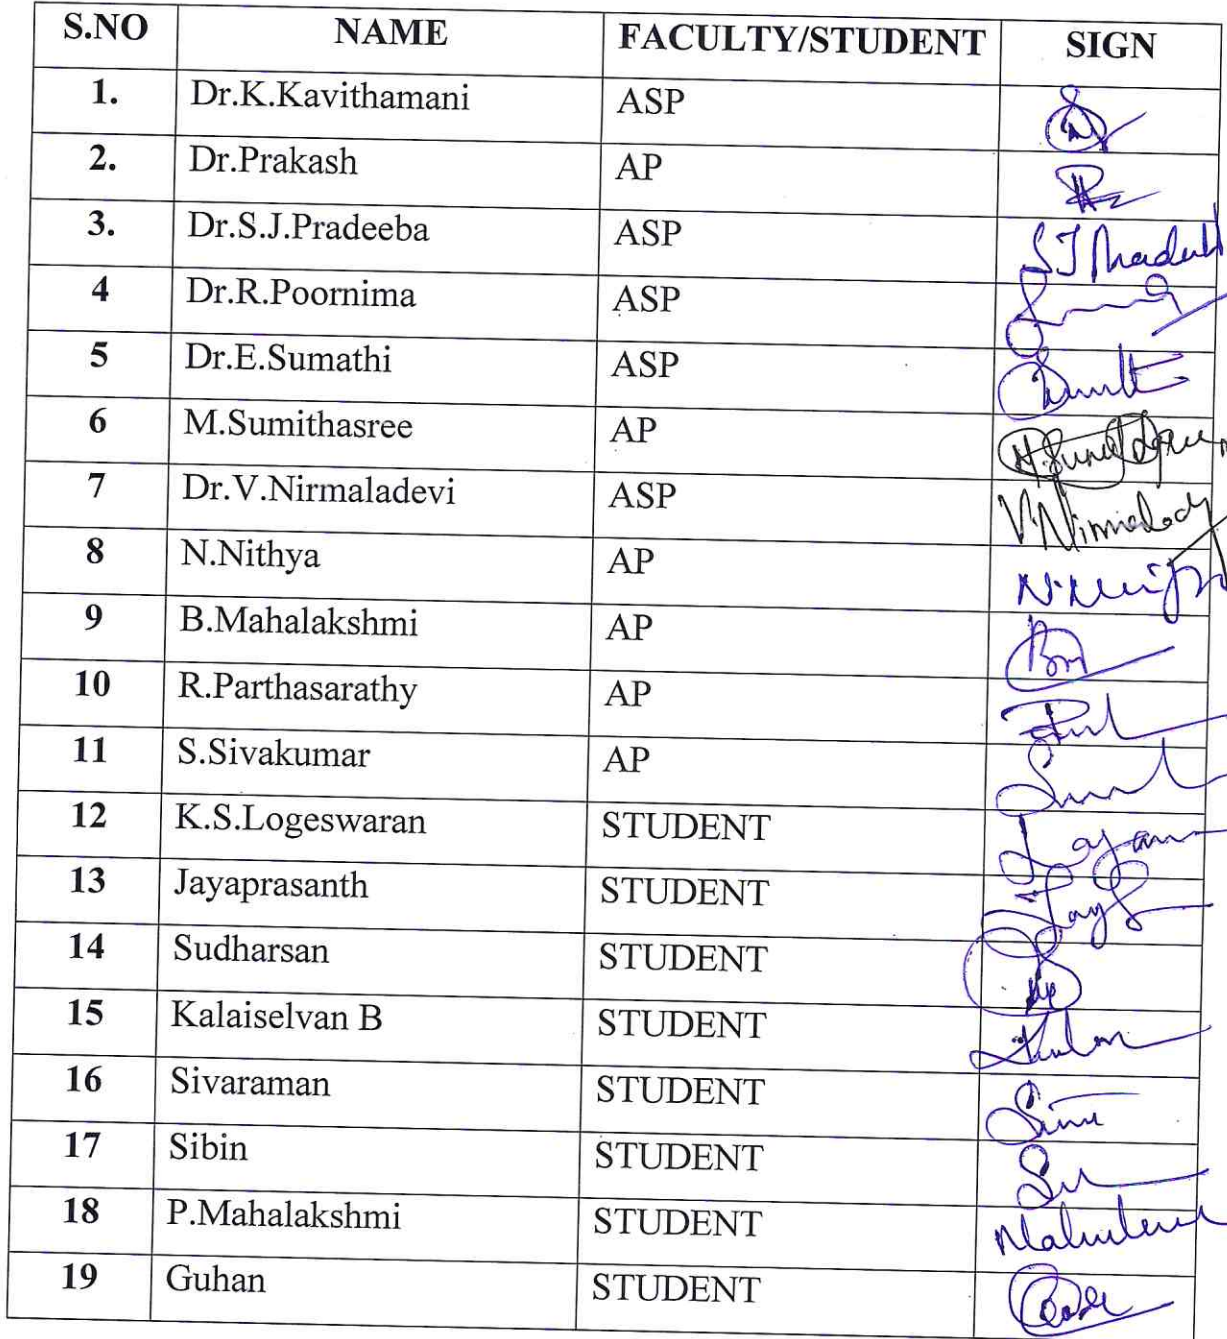 S.NO NAME FACULTY/STUDENT SIGN
1. Dr.K.Kavithamani ASP
2. Dr.Prakash AP
3. Dr.S.J.Pradeeba ASP
4 Dr.R.Poornima ASP
5 Dr.E.Sumathi ASP
6 M.Sumithasree AP
7 Dr.V.Nirmaladevi ASP
8 N.Nithya AP
9 B.Mahalakshmi AP
10 R.Parthasarathy AP
11 S.Sivakumar AP
12 K.S.Logeswaran STUDENT
13 Jayaprasanth STUDENT
14 Sudharsan STUDENT
15 Kalaiselvan B STUDENT
16 Sivaraman STUDENT
17 Sibin STUDENT
18 P.Mahalakshmi STUDENT
19 Guhan STUDENT